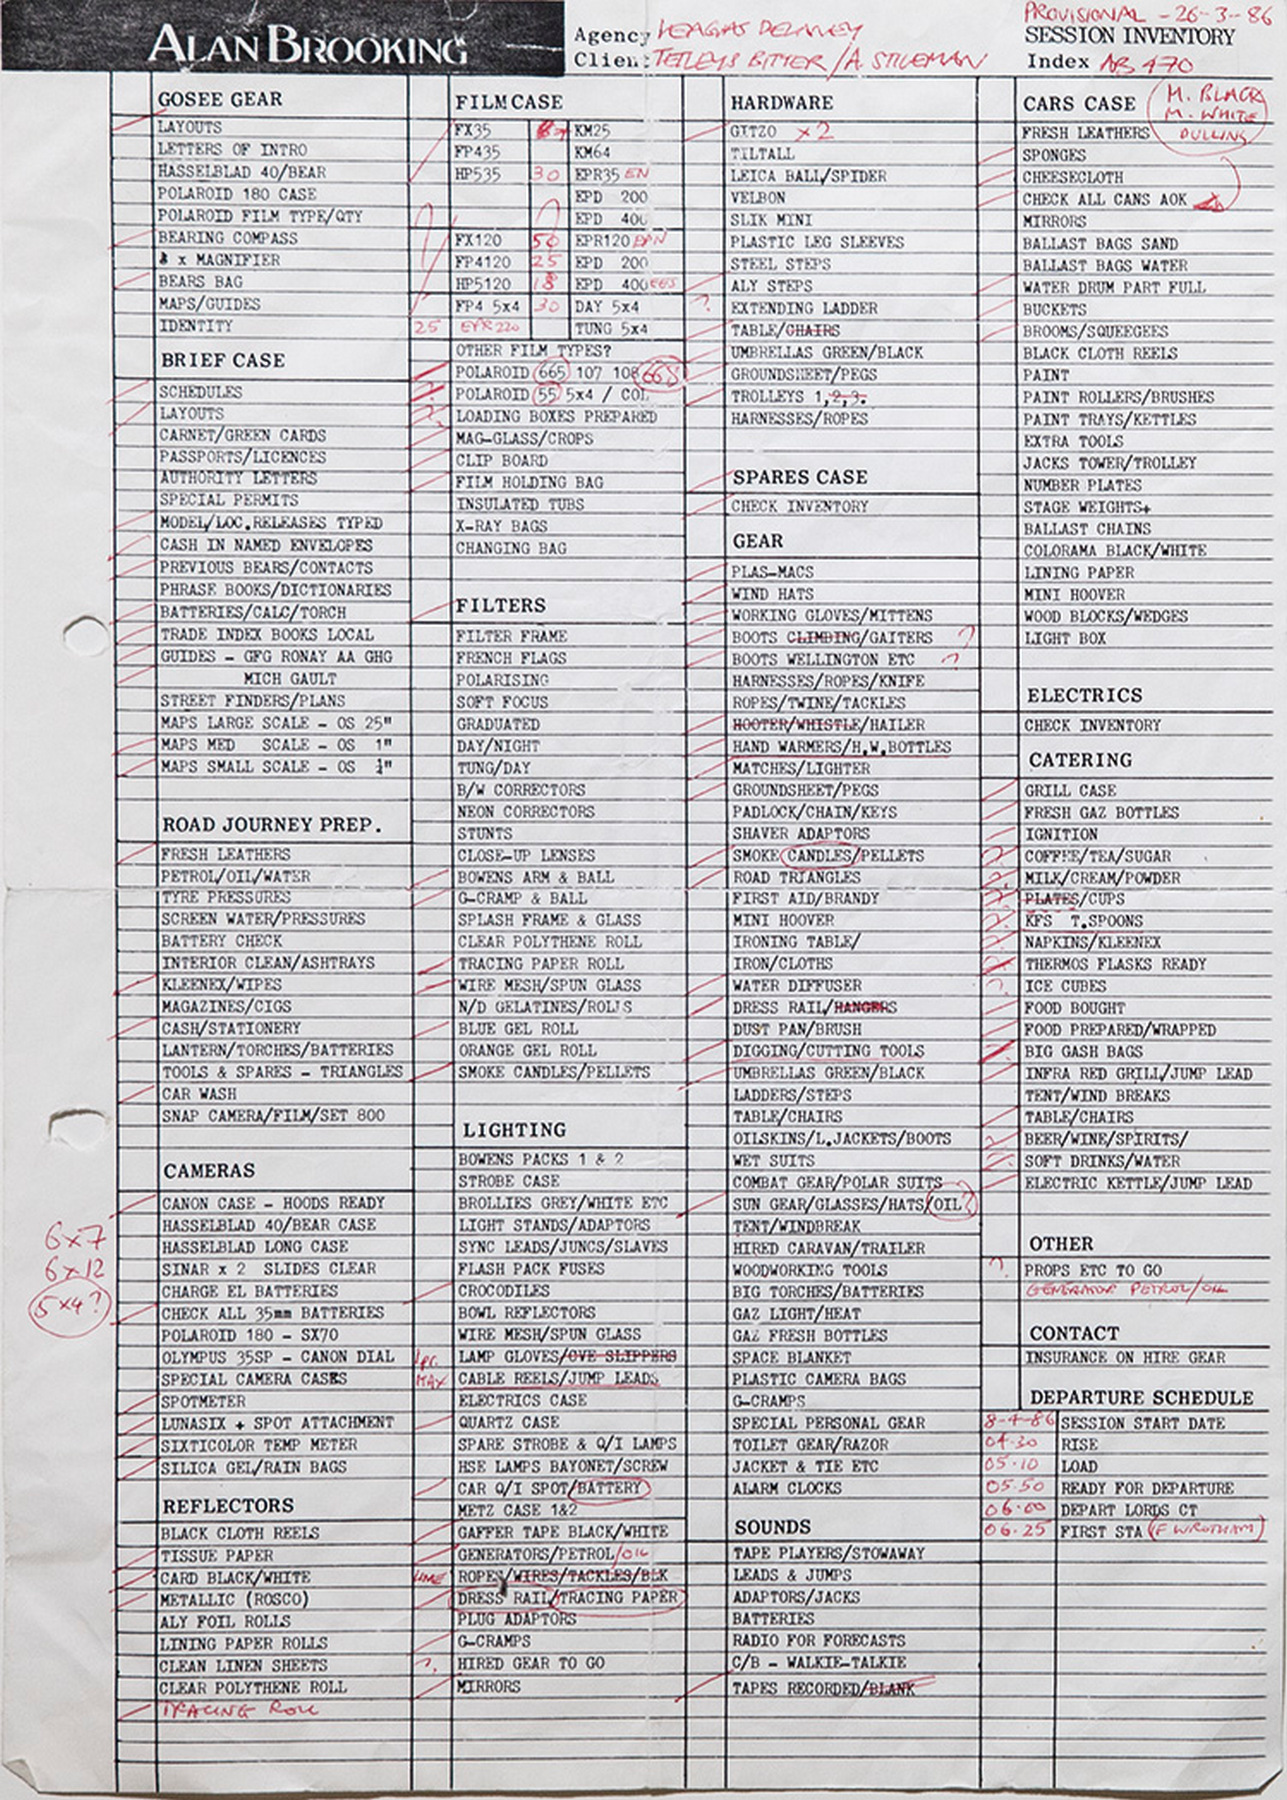 ALAN BROOKING
Agency LEAGAS DELANEY
Client TETLEYS BITTER / A STILEMAN
PROVISIONAL - 26-3-86
SESSION INVENTORY
Index AB 470
GOSEE GEAR
LAYOUTS
LETTERS OF INTRO
HASSELBLAD 40/BEAR
POLAROID 180 CASE
POLAROID FILM TYPE/QTY
BEARING COMPASS
8 x MAGNIFIER
BEARS BAG
MAPS/GUIDES
IDENTITY
BRIEF CASE
SCHEDULES
LAYOUTS
CARNET/GREEN CARDS
PASSPORTS/LICENCES
AUTHORITY LETTERS
SPECIAL PERMITS
MODEL/LOC.RELEASES TYPED
CASH IN NAMED ENVELOPES
PREVIOUS BEARS/CONTACTS
PHRASE BOOKS/DICTIONARIES
BATTERIES/CALC/TORCH
TRADE INDEX BOOKS LOCAL
GUIDES - GFG RONAY AA GHG
MICH GAULT
STREET FINDERS/PLANS
MAPS LARGE SCALE - OS 25"
MAPS MED SCALE - OS 1"
MAPS SMALL SCALE - OS ¼"
ROAD JOURNEY PREP.
FRESH LEATHERS
PETROL/OIL/WATER
TYRE PRESSURES
SCREEN WATER/PRESSURES
BATTERY CHECK
INTERIOR CLEAN/ASHTRAYS
KLEENEX/WIPES
MAGAZINES/CIGS
CASH/STATIONERY
LANTERN/TORCHES/BATTERIES
TOOLS & SPARES - TRIANGLES
CAR WASH
SNAP CAMERA/FILM/SET 800
CAMERAS
CANON CASE - HOODS READY
6x7 HASSELBLAD 40/BEAR CASE
HASSELBLAD LONG CASE
6x12 SINAR x 2 SLIDES CLEAR
CHARGE EL BATTERIES
5x4? CHECK ALL 35mm BATTERIES
POLAROID 180 - SX70
OLYMPUS 35SP - CANON DIAL
SPECIAL CAMERA CASES
SPOTMETER
LUNASIX + SPOT ATTACHMENT
SIXTICOLOR TEMP METER
SILICA GEL/RAIN BAGS
REFLECTORS
BLACK CLOTH REELS
TISSUE PAPER
CARD BLACK/WHITE
METALLIC (ROSCO)
ALY FOIL ROLLS
LINING PAPER ROLLS
CLEAN LINEN SHEETS
CLEAR POLYTHENE ROLL
TRACING ROLL
FILM CASE
FX35 KM25
FP435 KM64
HP535 30 EPR35 EN
EPD 200
EPD 400
FX120 50 EPR120 EPN
FP4120 25 EPD 200
HP5120 18 EPD 400
FP4 5x4 30 DAY 5x4
25 EPR 220 TUNG 5x4
OTHER FILM TYPES?
POLAROID 665 107 108 668
POLAROID 55 5x4 / COL
LOADING BOXES PREPARED
MAG-GLASS/CROPS
CLIP BOARD
FILM HOLDING BAG
INSULATED TUBS
X-RAY BAGS
CHANGING BAG
FILTERS
FILTER FRAME
FRENCH FLAGS
POLARISING
SOFT FOCUS
GRADUATED
DAY/NIGHT
TUNG/DAY
B/W CORRECTORS
NEON CORRECTORS
STUNTS
CLOSE-UP LENSES
BOWENS ARM & BALL
G-CRAMP & BALL
SPLASH FRAME & GLASS
CLEAR POLYTHENE ROLL
TRACING PAPER ROLL
WIRE MESH/SPUN GLASS
N/D GELATINES/ROLLS
BLUE GEL ROLL
ORANGE GEL ROLL
SMOKE CANDLES/PELLETS
LIGHTING
BOWENS PACKS 1 & 2
STROBE CASE
BROLLIES GREY/WHITE ETC
LIGHT STANDS/ADAPTORS
SYNC LEADS/JUNCS/SLAVES
FLASH PACK FUSES
CROCODILES
BOWL REFLECTORS
WIRE MESH/SPUN GLASS
1pr. LAMP GLOVES/OVE SLIPPERS
MAX CABLE REELS/JUMP LEADS
ELECTRICS CASE
QUARTZ CASE
SPARE STROBE & Q/I LAMPS
HSE LAMPS BAYONET/SCREW
CAR Q/I SPOT/BATTERY
METZ CASE 1&2
GAFFER TAPE BLACK/WHITE
GENERATORS/PETROL/OIL
ROPES/WIRES/TACKLES/BLK
DRESS RAIL/TRACING PAPER
PLUG ADAPTORS
G-CRAMPS
? HIRED GEAR TO GO
MIRRORS
HARDWARE
GITZO x2
TILTALL
LEICA BALL/SPIDER
VELBON
SLIK MINI
PLASTIC LEG SLEEVES
STEEL STEPS
ALY STEPS
? EXTENDING LADDER
TABLE/CHAIRS
UMBRELLAS GREEN/BLACK
GROUNDSHEET/PEGS
TROLLEYS 1,2,3.
HARNESSES/ROPES
SPARES CASE
CHECK INVENTORY
GEAR
PLAS-MACS
WIND HATS
WORKING GLOVES/MITTENS
BOOTS CLIMBING/GAITERS ?
BOOTS WELLINGTON ETC ?
HARNESSES/ROPES/KNIFE
ROPES/TWINE/TACKLES
HOOTER/WHISTLE/HAILER
HAND WARMERS/H.W.BOTTLES
MATCHES/LIGHTER
GROUNDSHEET/PEGS
PADLOCK/CHAIN/KEYS
SHAVER ADAPTORS
SMOKE CANDLES/PELLETS
ROAD TRIANGLES
FIRST AID/BRANDY
MINI HOOVER
IRONING TABLE/
IRON/CLOTHS
WATER DIFFUSER
DRESS RAIL/HANGERS
DUST PAN/BRUSH
DIGGING/CUTTING TOOLS
UMBRELLAS GREEN/BLACK
LADDERS/STEPS
TABLE/CHAIRS
OILSKINS/L.JACKETS/BOOTS
WET SUITS
COMBAT GEAR/POLAR SUITS
SUN GEAR/GLASSES/HATS/OIL?
TENT/WINDBREAK
HIRED CARAVAN/TRAILER
WOODWORKING TOOLS
BIG TORCHES/BATTERIES
GAZ LIGHT/HEAT
GAZ FRESH BOTTLES
SPACE BLANKET
PLASTIC CAMERA BAGS
G-CRAMPS
SPECIAL PERSONAL GEAR
TOILET GEAR/RAZOR
JACKET & TIE ETC
ALARM CLOCKS
SOUNDS
TAPE PLAYERS/STOWAWAY
LEADS & JUMPS
ADAPTORS/JACKS
BATTERIES
RADIO FOR FORECASTS
C/B - WALKIE-TALKIE
TAPES RECORDED/BLANK
CARS CASE
M. BLACK
M. WHITE
DULLING
FRESH LEATHERS
SPONGES
CHEESECLOTH
CHECK ALL CANS AOK
MIRRORS
BALLAST BAGS SAND
BALLAST BAGS WATER
WATER DRUM PART FULL
BUCKETS
BROOMS/SQUEEGEES
BLACK CLOTH REELS
PAINT
PAINT ROLLERS/BRUSHES
PAINT TRAYS/KETTLES
EXTRA TOOLS
JACKS TOWER/TROLLEY
NUMBER PLATES
STAGE WEIGHTS+
BALLAST CHAINS
COLORAMA BLACK/WHITE
LINING PAPER
MINI HOOVER
WOOD BLOCKS/WEDGES
LIGHT BOX
ELECTRICS
CHECK INVENTORY
CATERING
GRILL CASE
FRESH GAZ BOTTLES
IGNITION
COFFEE/TEA/SUGAR
MILK/CREAM/POWDER
PLATES/CUPS
KFS T.SPOONS
NAPKINS/KLEENEX
THERMOS FLASKS READY
ICE CUBES
FOOD BOUGHT
FOOD PREPARED/WRAPPED
BIG GASH BAGS
INFRA RED GRILL/JUMP LEAD
TENT/WIND BREAKS
TABLE/CHAIRS
BEER/WINE/SPIRITS/
SOFT DRINKS/WATER
ELECTRIC KETTLE/JUMP LEAD
OTHER
? PROPS ETC TO GO
GENERATOR PETROL/OIL
CONTACT
INSURANCE ON HIRE GEAR
DEPARTURE SCHEDULE
8-4-86 SESSION START DATE
04.30 RISE
05.10 LOAD
05.50 READY FOR DEPARTURE
06.00 DEPART LORDS CT
06.25 FIRST STA (F WROTHAM)